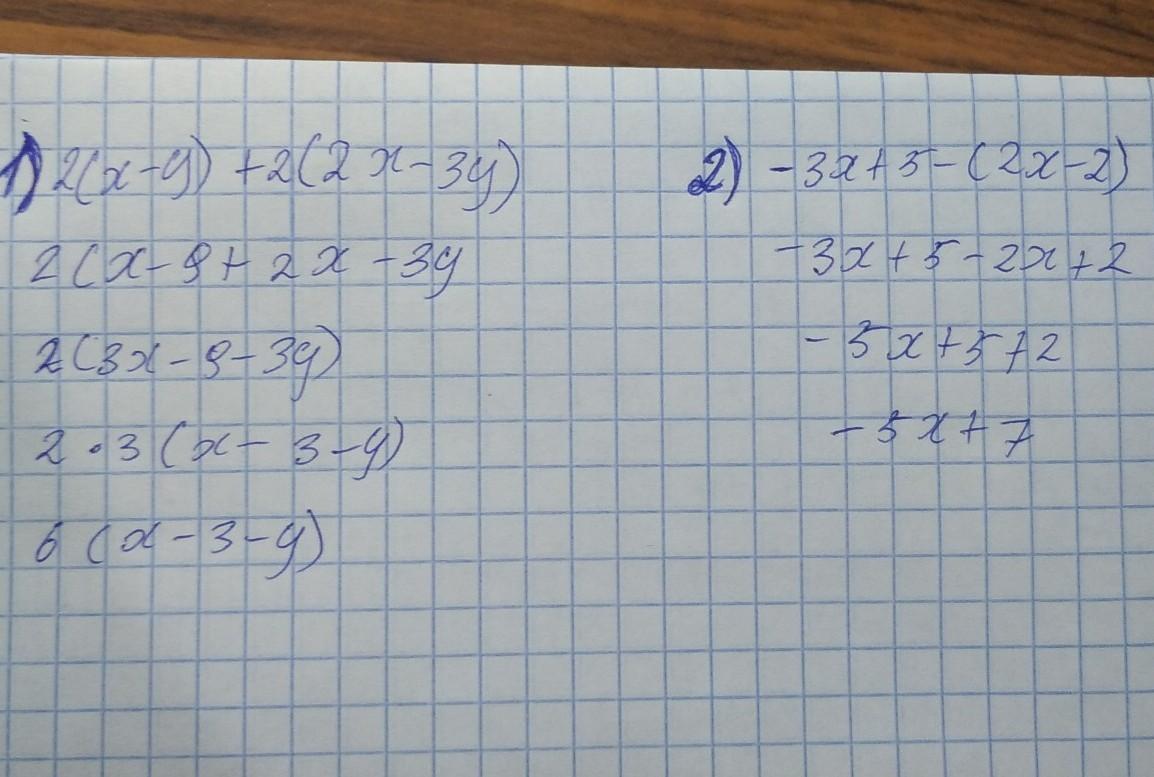 1) 2(x-9)+2(2x-3y)
2(x-9+2x-3y
2(3x-9-3y)
2·3(x-3-y)
6(x-3-y)
2) -3x+5-(2x-2)
-3x+5-2x+2
-5x+5+2
-5x+7